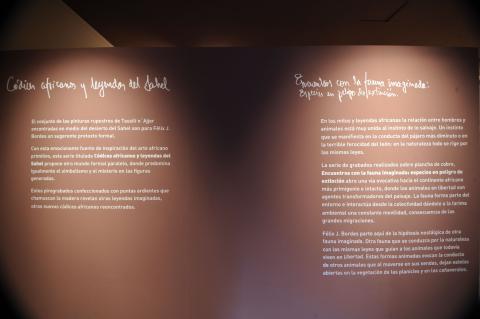 Códices africanos y leyendas del Sahel
El conjunto de las pinturas rupestres de Tassili n´ Ajjer
encontradas en medio del desierto del Sahel son para Félix J.
Bordes un sugerente pretexto formal.
Con esta emocionante fuente de inspiración del arte africano
primitivo, esta serie titulada Códices africanos y leyendas del
Sahel propone otro mundo formal paralelo, donde predomina
igualmente el simbolismo y el misterio en las figuras
generadas.
Estos pirograbados confeccionados con puntas ardientes que
chamuscan la madera revelan otras leyendas imaginadas,
otros nuevos códices africanos reencontrados.
Encuentros con la fauna imaginada:
Especies en peligro de extinción.
En los mitos y leyendas africanas la relación entre hombres y
animales está muy unida al instinto de lo salvaje. Un instinto
que se manifiesta en la conducta del pájaro mas diminuto o en
la terrible ferocidad del león: en la naturaleza todo se rige por
las mismas leyes.
La serie de grabados realizados sobre plancha de cobre,
Encuentros con la fauna imaginada: especies en peligro de
extinción abre una vía evocativa hacia el continente africano
más primigenio e intacto, donde los animales en libertad son
agentes transformadores del paisaje. La fauna forma parte del
entorno e interactúa desde la colectividad dándole a la tarima
ambiental una constante movilidad, consecuencia de las
grandes migraciones.
Félix J. Bordes parte aquí de la hipótesis nostálgica de otra
fauna imaginada. Otra fauna que se conduzca por la naturaleza
con las mismas leyes que guían a los animales que todavía
viven en libertad. Estas formas animadas evocan la conducta
de otros animales que al moverse en sus sendas, dejan estelas
abiertas en la vegetación de las planicies y en los cañaverales.